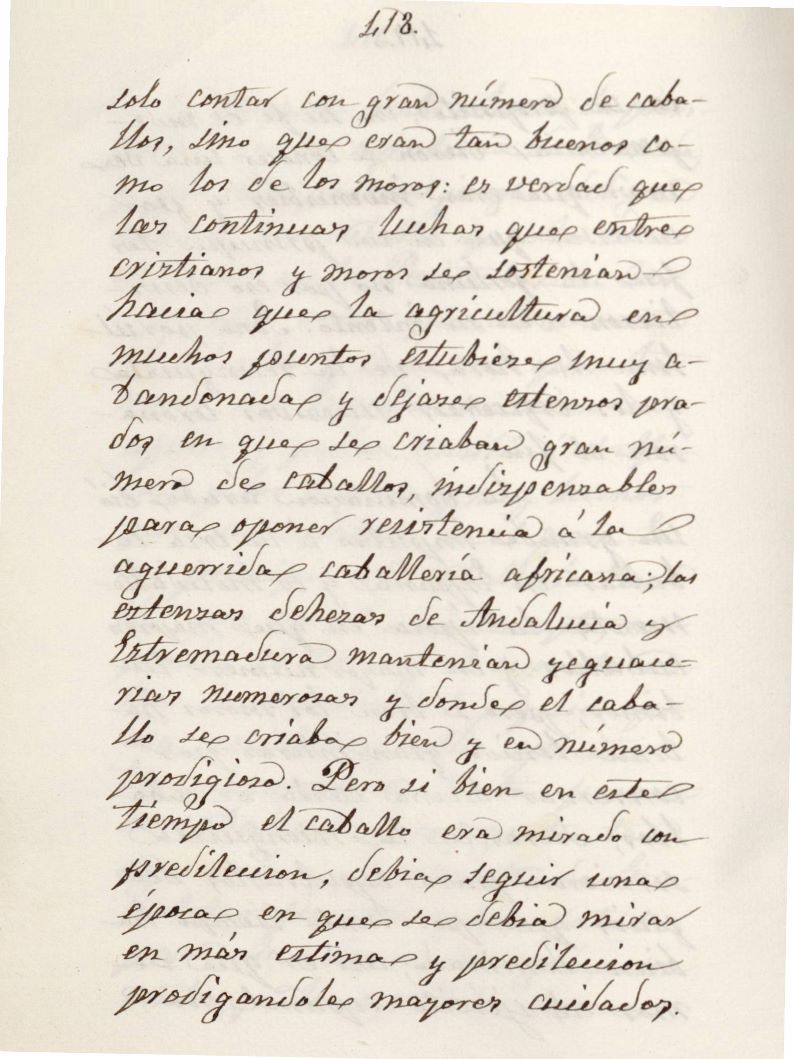 418.
solo contar con gran número de caba-
llos, sino que eran tan buenos co-
mo los de los moros: es verdad que
las continuas luchas que entre
cristianos y moros se sostenian
hacia que la agricultura en
muchos puntos estubiese muy a-
bandonada y dejase estensos pra-
dos en que se criaban gran nú-
mero de caballos, indispensables
para oponer resistencia á la
aguerrida caballería africana; las
estensas dehesas de Andalucia y
Estremadura mantenian yeguace-
rias numerosas y donde el caba-
llo se criaba bien y en número
prodigioso. Pero si bien en este
tiempo el caballo era mirado con
predileccion, debia seguir una
época en que se debia mirar
en más estima y predileccion
prodigandole mayores cuidados.